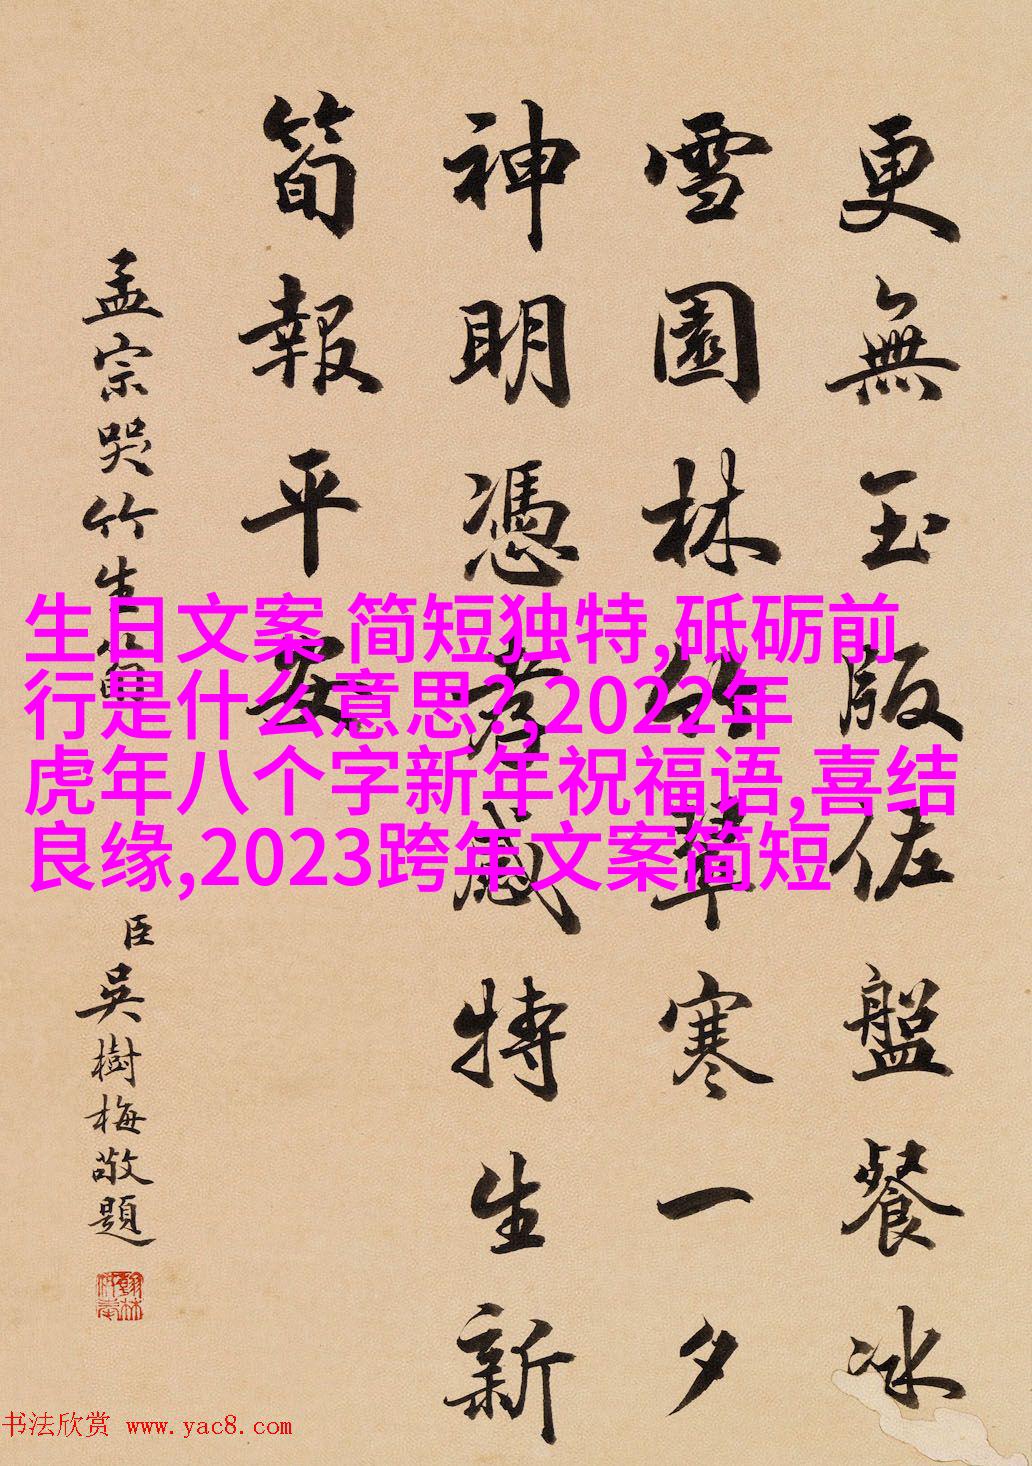 更無玉版佐盤餐冰
雪園林翠寒一夕
神明憑孝感特生新
筍報平安
孟宗哭竹生筍
臣吳樹梅敬題
生日文案 简短独特,砥砺前
行是什么意思?,2022年
虎年八个字新年祝福语,喜结
良缘,2023跨年文案简短
书法欣赏 www.yac8.com